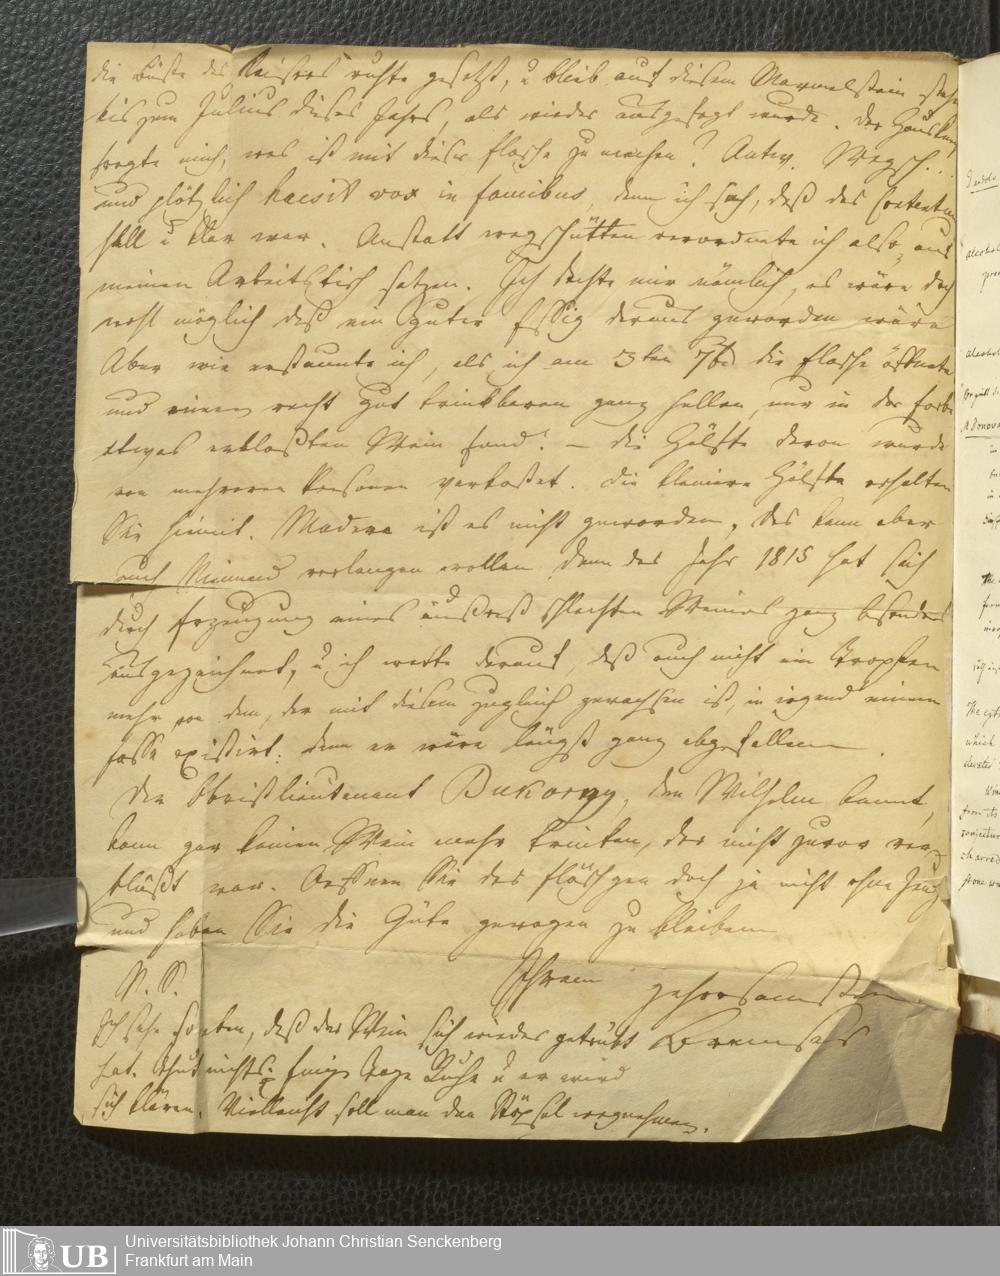 die Büste des Kaisers ruhte gesetzt, u blieb auf diesem Marmelstein steh
bis zum Julius dieses Jahrs, als wieder ausgefegt wurde. Der Hausknecht
fragte mich, was ist mit dieser Flasche zu machen? Antw. Wegsch...
und plötzlich haesit vox in faucibus, denn ich sah, daß das Contentum
hell u klar war. Anstatt wegschütten verordnete ich also, auf
meinen Arbeitstisch setzen. Ich dachte mir nämlich, es wäre doch
wohl möglich daß ein guter Essig daraus geworden wäre
Aber wie erstaunte ich, als ich am 3ten 7b. die Flasche öffnete
und einen recht gut trinkbaren ganz hellen, nur in der Farbe
etwas erblaßten Wein fand! – die Hälfte davon wurde
von mehreren Personen verkostet. die kleinere Hälfte erhalten
Sie hiemit. Madera ist es nicht geworden, das kann aber
auch Niemand verlangen wollen denn das Jahr 1815 hat sich
durch Erzeugung eines äußerst schlechten Weines ganz besonders
ausgezeichnet, u ich wette darauf, daß auch nicht ein Tropfen
mehr von dem, der mit diesem zugleich gewachsen ist, in irgend einem
Fasse existirt: denn er wäre längst ganz abgefallen.
Der Obristlieutenant Bukorny, den Wilhelm kennt,
kann gar keinen Wein mehr trinken, der nicht zuvor ver-
blüßt war. Oeffnen Sie das Fläschgen doch ja nicht ohne Zeug
und haben Sie die Güte gewogen zu bleiben
N. S.
Ihrem gehorsamsten
Ich sehe soeben, daß der Wein sich wieder getrübt
Bremser
hat. Thut nichts: Einige Tage Ruhe u er wird
sich klären. Vielleicht soll man den Stöpsel wegnehmen.
alcohol
alcohol
M Donova
the
which
from its
conjectur
charred
stone
UB
Universitätsbibliothek Johann Christian Senckenberg
Frankfurt am Main